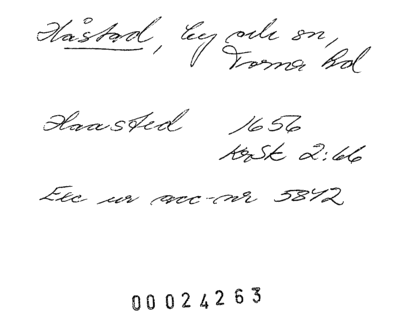 Håstad, by och sn,
Torna hd
Haasted 1656
KrSk 2:66
Exc ur acc-nr 5842
00024263